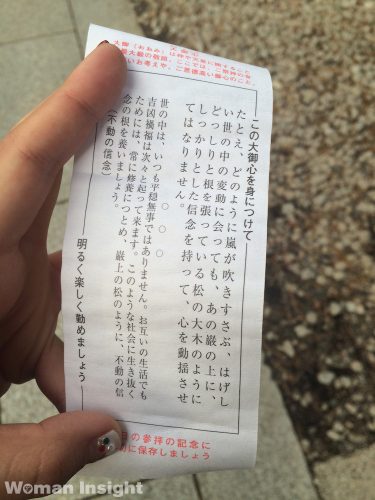 大御(おおみ)は神や天皇に関すること
この大御心を身につけて
たとえ、どのように嵐が吹きすさぶ、はげし
い世の中の変動に会っても、あの巌の上に、
どっしりと根を張っている松の大木のように
しっかりとした信念を持って、心を動揺させ
てはなりません。
○ ○ ○
世の中は、いつも平穏無事ではありません。お互いの生活でも
吉凶禍福は次々と起って来ます。このような社会に生き抜く
ためには、常に修養につとめ、巌上の松のように、不動の信
念の根を養いましょう。
(不動の信念)
明るく楽しく勤めましょう
の参拝の記念に
に保存しましょう
Woman Insight